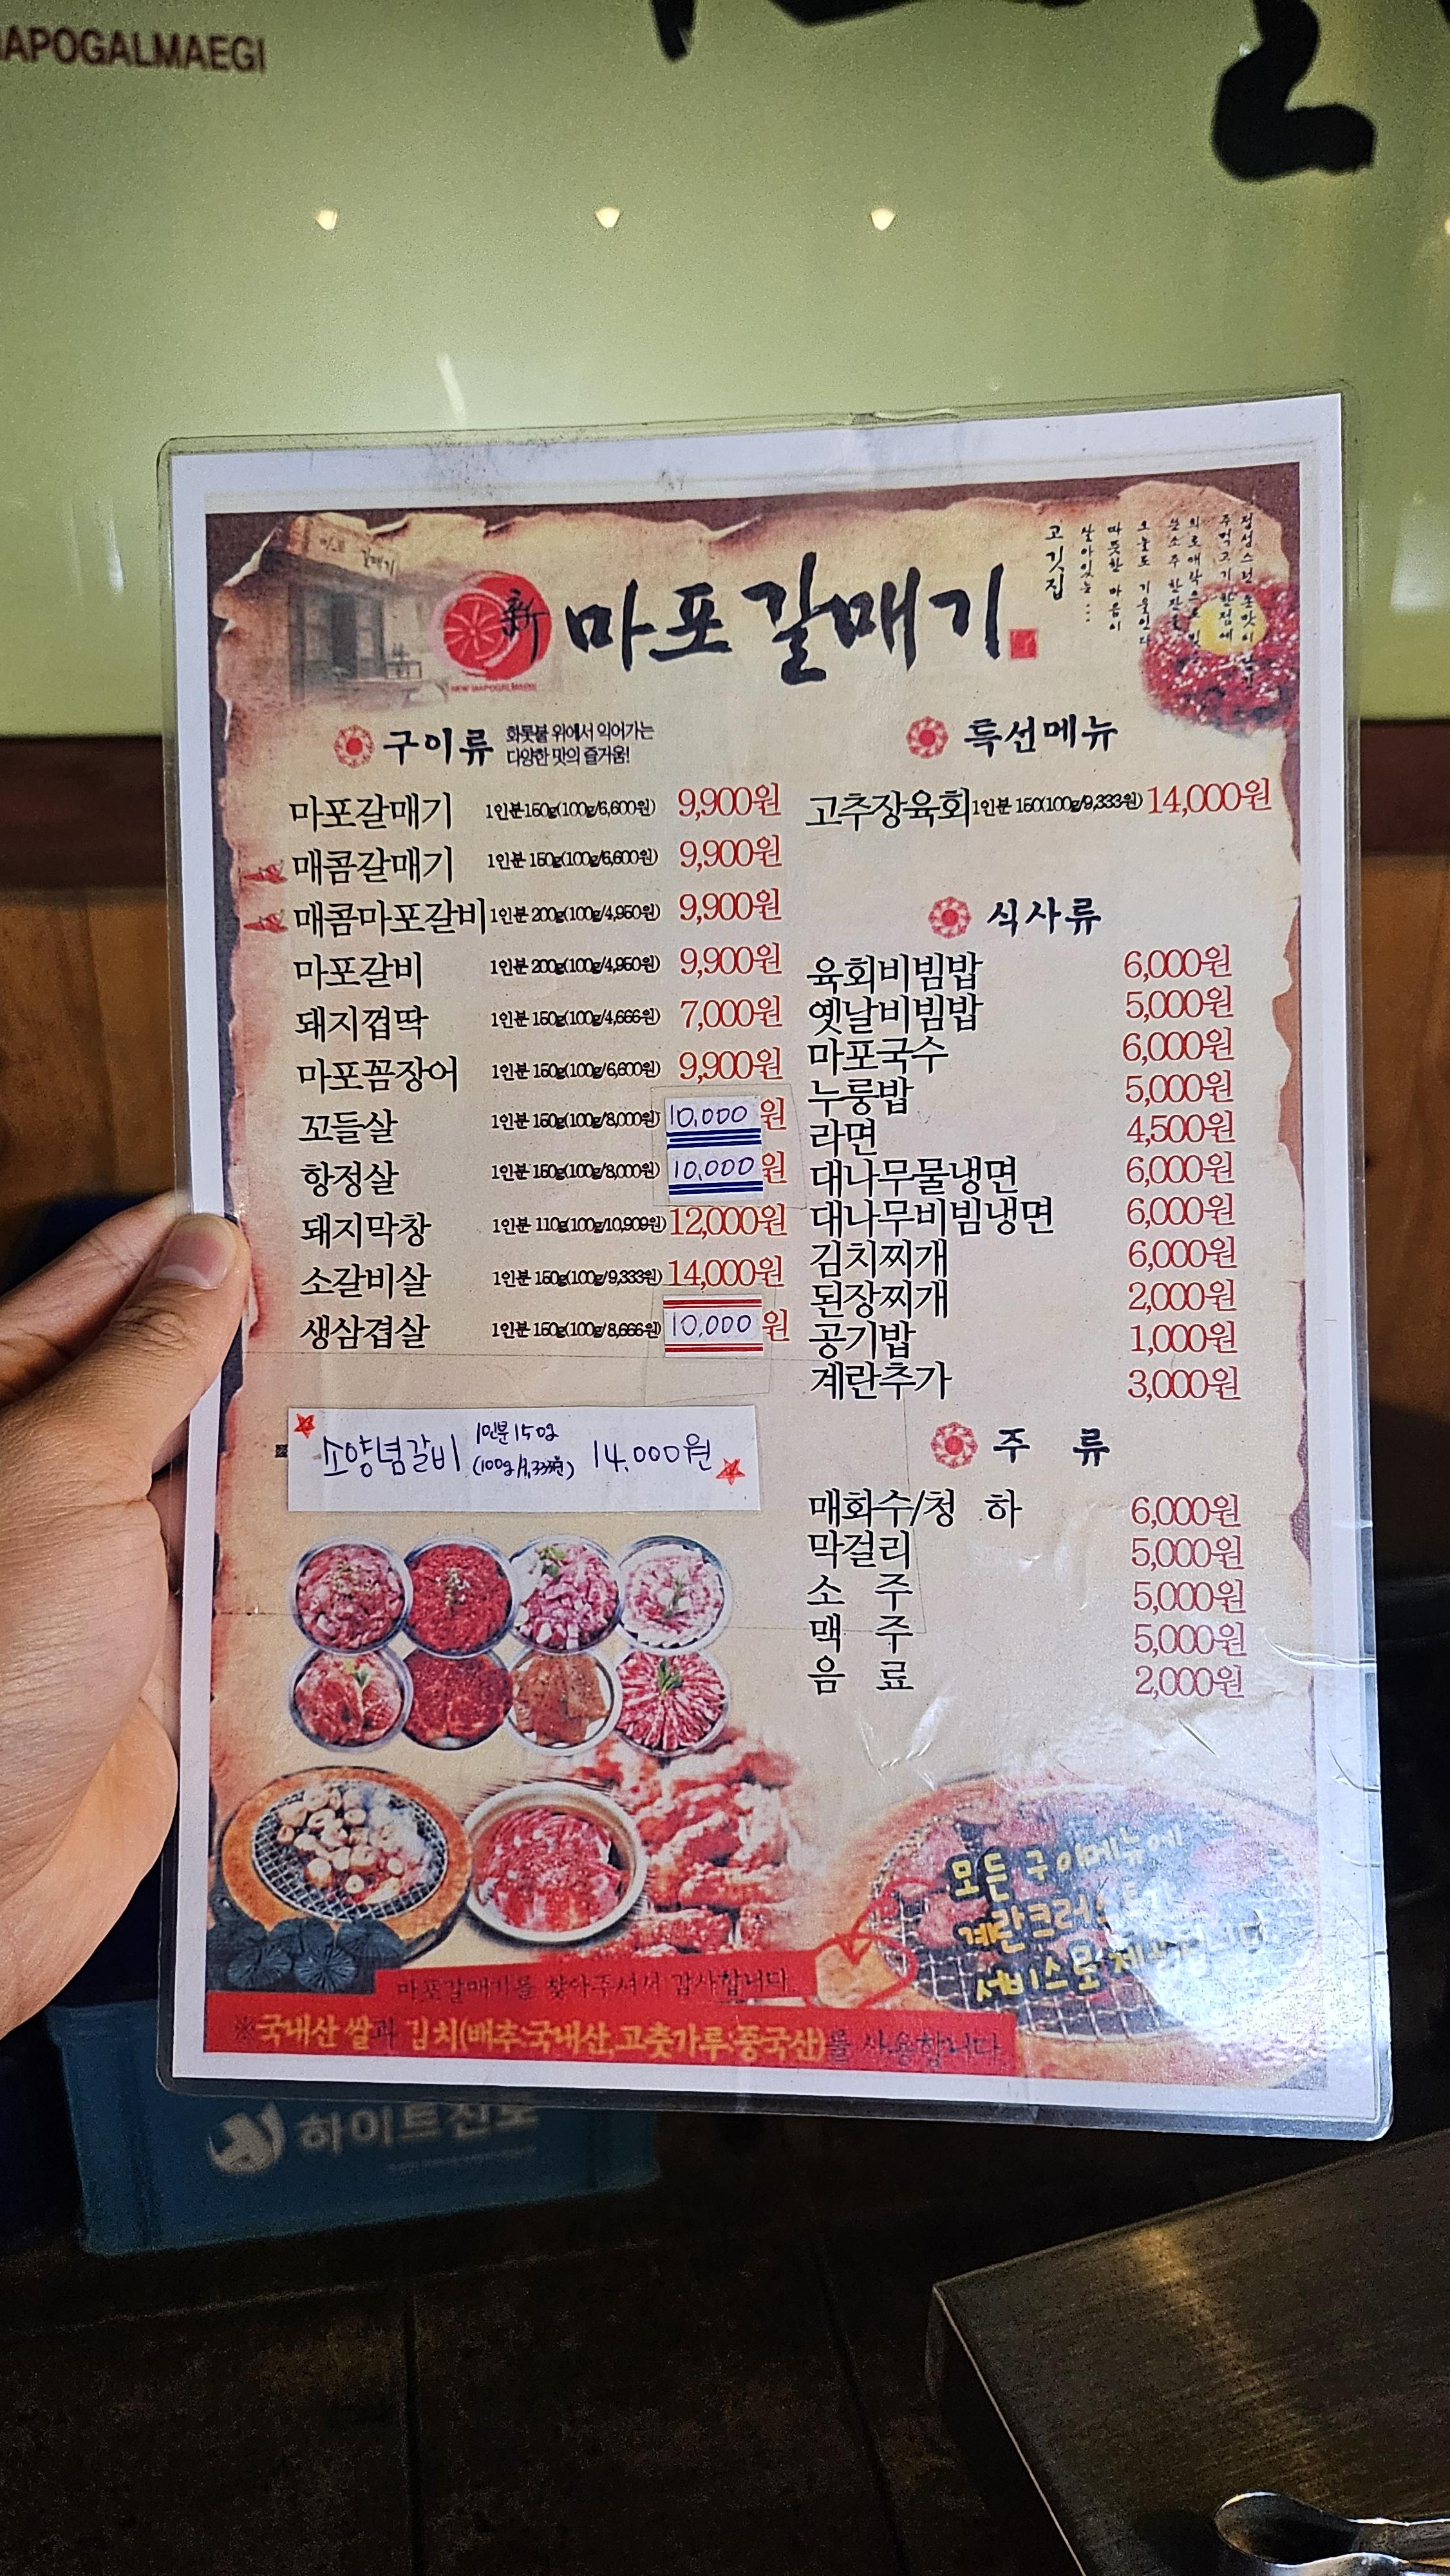 MAPOGALMAEGI
마포갈매기
新 마포갈매기
고깃집
살아있는...
따뜻한 마음이
구이류 화롯불 위에서 익어가는
다양한 맛의 즐거움!
마포갈매기 1인분150g(100g/6,600원) 9,900원
매콤갈매기 1인분 150g(100g/6,600원) 9,900원
매콤마포갈비 1인분 200g(100g/4,950원) 9,900원
마포갈비 1인분 200g(100g/4,950원) 9,900원
돼지껍딱 1인분 150g(100g/4,666원) 7,000원
마포꼼장어 1인분 150g(100g/6,600원) 9,900원
꼬들살 1인분 150g(100g/8,000원) 10,000원
항정살 1인분 150g(100g/8,000원) 10,000원
돼지막창 1인분 110g(100g/10,909원) 12,000원
소갈비살 1인분 150g(100g/9,333원) 14,000원
생삼겹살 1인분 150g(100g/8,666원) 10,000원
소양념갈비 1인분 150g
(100g/9,333원) 14,000원
특선메뉴
고추장육회 1인분 150(100g/9,333원) 14,000원
식사류
육회비빔밥 6,000원
옛날비빔밥 5,000원
마포국수 6,000원
누룽밥 5,000원
라면 4,500원
대나무물냉면 6,000원
대나무비빔냉면 6,000원
김치찌개 6,000원
된장찌개 2,000원
공기밥 1,000원
계란추가 3,000원
주 류
매화수/청 하 6,000원
막걸리 5,000원
소 주 5,000원
맥 주 5,000원
음 료 2,000원
모든 구이메뉴에
서비스로
마포갈매기를 찾아주셔서 감사합니다.
※국내산 쌀과 김치(배추:국내산,고춧가루:중국산)를 사용합니다.
하이트진로